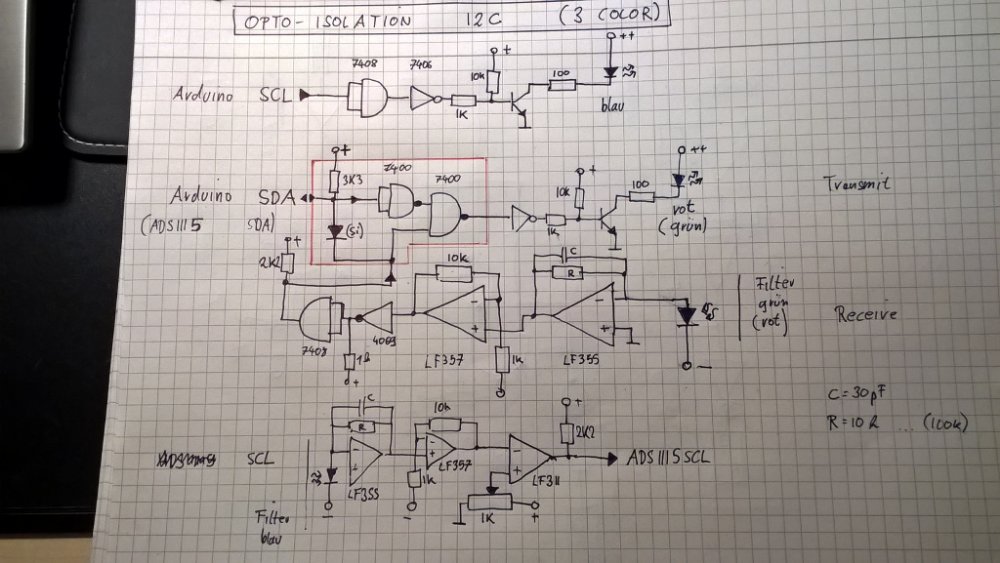 OPTO-ISOLATION I2C (3 COLOR)
++
7408 7406 + 10k 100
Arduino SCL
1K blau
+ ++
3K3 7400 7400 + 10k 100
Arduino SDA Transmit
(ADS1115 SDA) (Si) 1K rot (grün)
+ 2K2 10k C R
Filter grün (rot) Receive
+ - + -
7408 4009 LF357 1K LF355 -
+
C=30pF
R=10 ... (100k)
C R 10k + 2K2
SCL - + - + - + ADS1115 SCL
LF355 1K LF357 LF311
- - 1K +
Filter blau